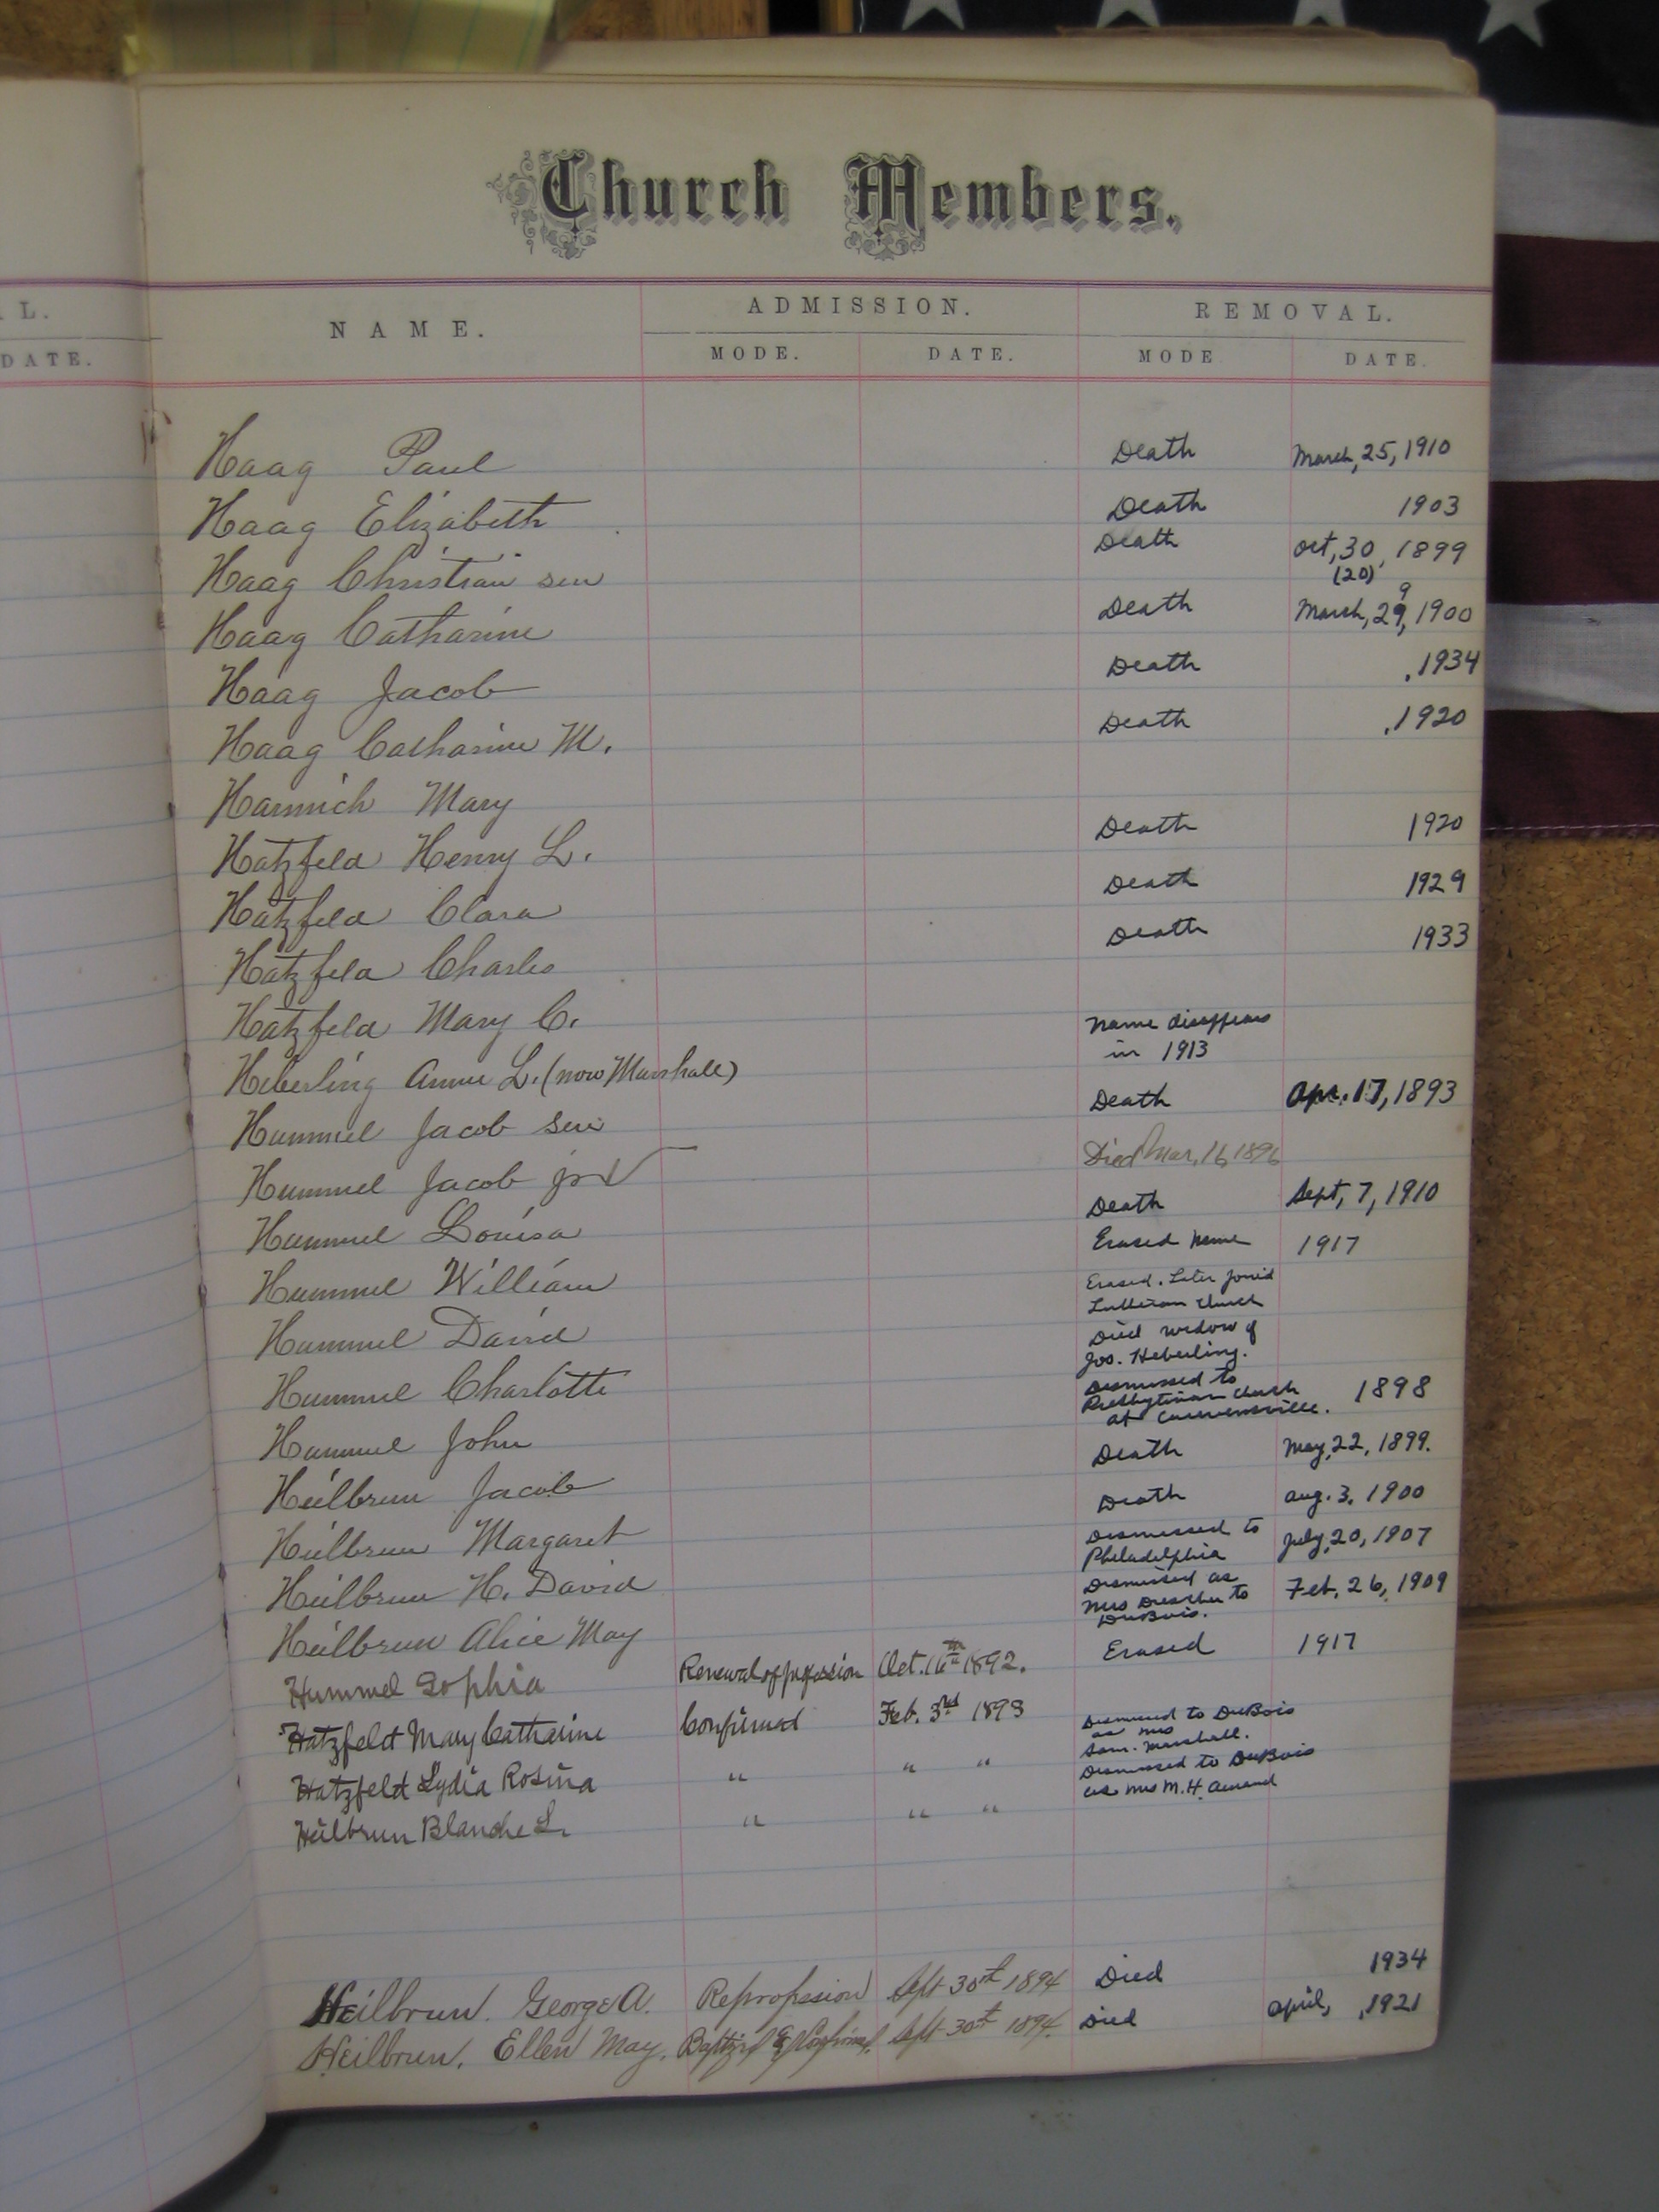 Church Members.
L.
DATE.
NAME.
ADMISSION.
REMOVAL.
MODE.
DATE.
MODE
DATE.
Haag Paul Death March, 25, 1910
Haag Elizabeth Death 1903
Haag Christian sen Death Oct, 30, 1899
(20)
9
Haag Catharine Death March, 29, 1900
Haag Jacob Death .1934
Haag Catharine M. Death .1920
Mary
Hatzfeld Henry L. Death 1920
Hatzfeld Clara Death 1929
Hatzfeld Charles Death 1933
Hatzfeld Mary C.
Heberling Annie L. (now Marshall) Name disappears
in 1913
Hummel Jacob sen Death Apr. 17, 1893
Hummel Jacob jr √ Died Mar, 16, 1896
Hummel Louisa Death Sept, 7, 1910
Hummel William Erased Name 1917
Hummel David Erased. Later joined
Lutheran Church
Hummel Charlotte Died widow of
Jos. Heberling.
Hummel John Dismissed to
Presbyterian Church 1898
at Curwensville.
Heilbrun Jacob Death May, 22, 1899.
Heilbrun Margaret Death Aug. 3, 1900
Heilbrun H. David Dismissed to July, 20, 1907
Philadelphia
Heilbrun Alice May Dismissed as Feb, 26, 1909
Mrs to
DuBois.
Hummel Sophia Renewal of profession Oct. 16th 1892. Erased 1917
Hatzfeldt Mary Catharine Confirmed Feb. 3rd 1893 Dismissed to DuBois
as Mrs
Sam. Marshall.
Hatzfeldt Lydia Rosina " " " Dismissed to DuBois
as Mrs M. H.
Heilbrun Blanche L. " " "
Heilbrun. George A. Reprofession Sept 30th 1894 Died 1934
Heilbrun, Ellen May. Baptized & Confirmed. Sept 30th 1894. Died April, ,1921